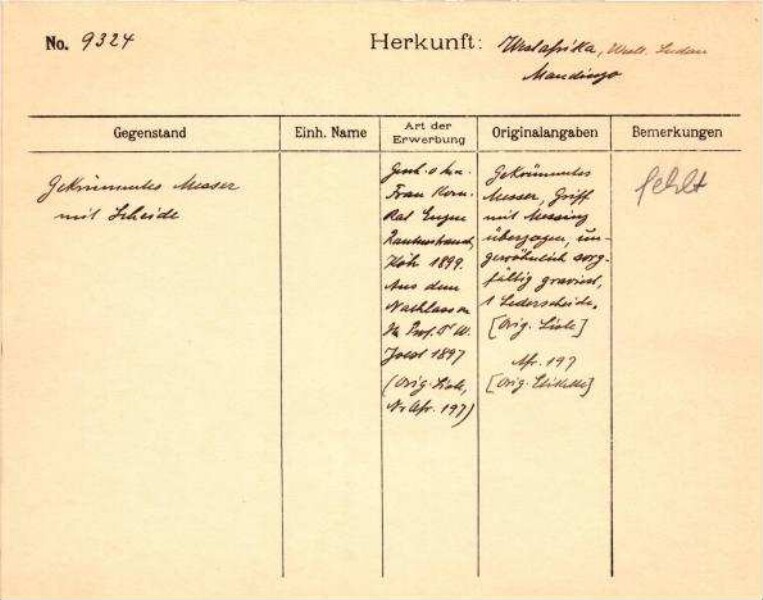 No. 9324
Herkunft: Westafrika, Westl. Sudan
Mandingo
Gegenstand
Einh. Name
Art der
Erwerbung
Originalangaben
Bemerkungen
Gekrümmtes Messer
mit Scheide
Gesch. d.
Frau Kom.
Rat Eugen
Rautenstrauch,
Köln 1899.
Aus dem
Nachlass v.
Prof. Dr W.
Joest 1897
(Orig. Liste,
Nr Afr. 197)
Gekrümmtes
Messer, Griff
mit Messing
überzogen, un-
gewöhnlich sorg-
fältig graviert,
1 Lederscheide.
[Orig. Liste]
Afr. 197
[Orig. Etikette]
fehlt